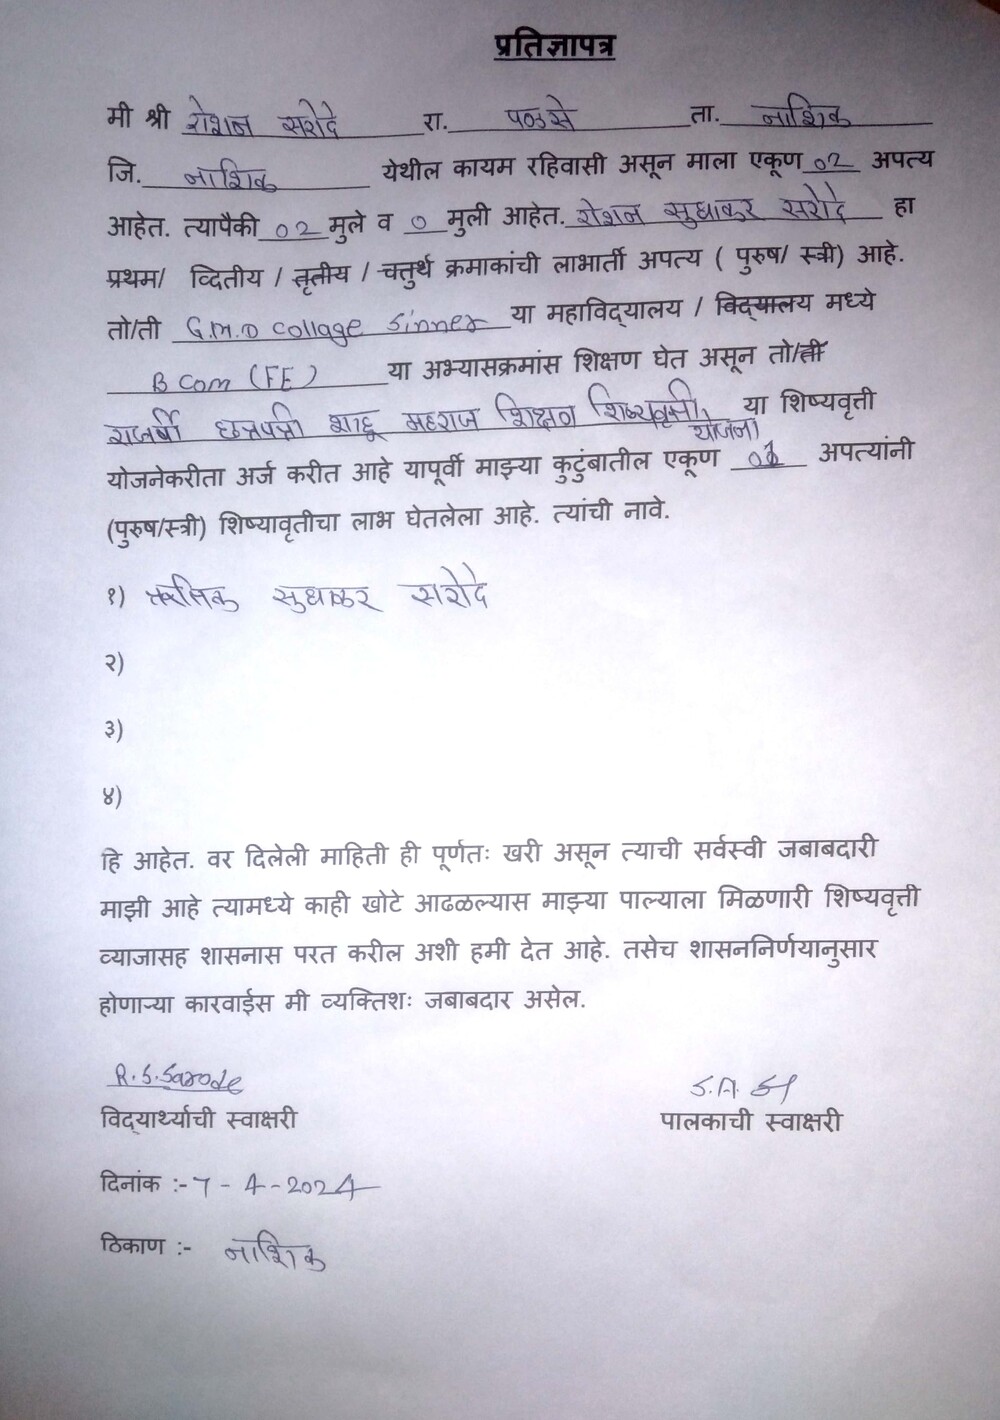 प्रतिज्ञापत्र
मी श्री रोशन सरोदे रा. पळसे ता. नाशिक
जि. नाशिक येथील कायम रहिवासी असून माला एकूण 02 अपत्य
आहेत. त्यापैकी 02 मुले व 0 मुली आहेत. रोशन सुधाकर सरोदे हा
प्रथम/ व्दितीय / तृतीय / चतुर्थ क्रमाकांची लाभार्ती अपत्य ( पुरुष/ स्त्री) आहे.
तो/ती G.M.D collage Sinner या महाविद्यालय / विद्यालय मध्ये
B com (FE) या अभ्यासक्रमांस शिक्षण घेत असून तो/ती
राजर्षी छत्रपत्री शाहू महराज शिक्षन शिष्यवृत्ती योजना या शिष्यवृत्ती
योजनेकरीता अर्ज करीत आहे यापूर्वी माझ्या कुटुंबातील एकूण 01 अपत्यांनी
(पुरुष/स्त्री) शिष्यावृतीचा लाभ घेतलेला आहे. त्यांची नावे.
१) सुधाकर सरोदे
२)
३)
४)
हि आहेत. वर दिलेली माहिती ही पूर्णतः खरी असून त्याची सर्वस्वी जबाबदारी
माझी आहे त्यामध्ये काही खोटे आढळल्यास माझ्या पाल्याला मिळणारी शिष्यवृत्ती
व्याजासह शासनास परत करील अशी हमी देत आहे. तसेच शासननिर्णयानुसार
होणाऱ्या कारवाईस मी व्यक्तिशः जबाबदार असेल.
R.S.Sarode
विद्यार्थ्याची स्वाक्षरी पालकाची स्वाक्षरी
दिनांक :- 7 - 4 - 2024
ठिकाण :- नाशिक